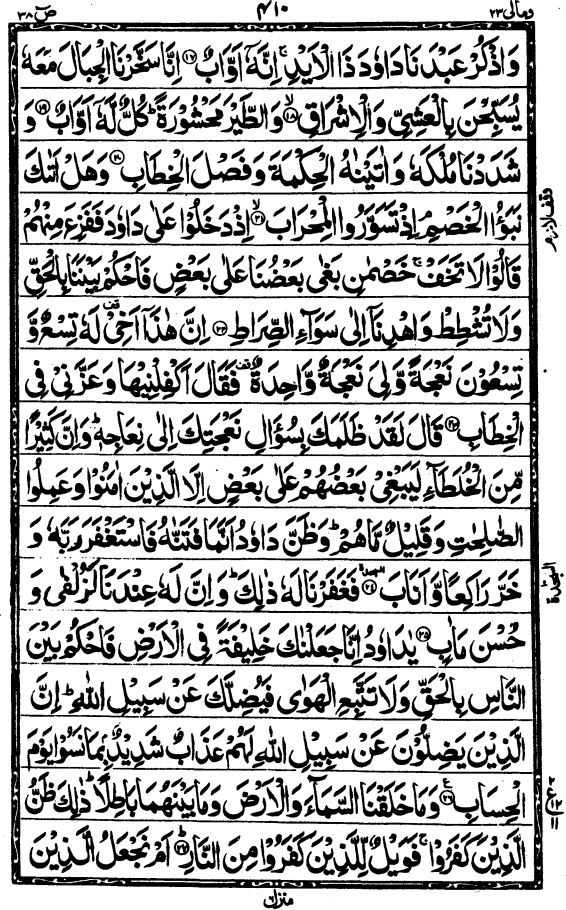 ومالی ٢٣ ٤١٠ صٓ ٣٨
وَاذْكُرْ عَبْدَنَا دَاوٗدَ ذَا الْاَیْدِ ۚ اِنَّهٗۤ اَوَّابٌ ﴿١٧﴾ اِنَّا سَخَّرْنَا الْجِبَالَ مَعَهٗ
یُسَبِّحْنَ بِالْعَشِیِّ وَالْاِشْرَاقِ ﴿١٨﴾ۙ وَالطَّیْرَ مَحْشُوْرَةً ؕ كُلٌّ لَّهٗۤ اَوَّابٌ ﴿١٩﴾ وَ
شَدَدْنَا مُلْكَهٗ وَاٰتَیْنٰهُ الْحِكْمَةَ وَفَصْلَ الْخِطَابِ ﴿٢٠﴾ وَهَلْ اَتٰىكَ
نَبَؤُا الْخَصْمِ ۘ اِذْ تَسَوَّرُوا الْمِحْرَابَ ﴿٢١﴾ۙ اِذْ دَخَلُوْا عَلٰی دَاوٗدَ فَفَزِعَ مِنْهُمْ
قَالُوْا لَا تَخَفْ ۚ خَصْمٰنِ بَغٰی بَعْضُنَا عَلٰی بَعْضٍ فَاحْكُمْ بَیْنَنَا بِالْحَقِّ
وَلَا تُشْطِطْ وَاهْدِنَاۤ اِلٰی سَوَآءِ الصِّرَاطِ ﴿٢٢﴾ اِنَّ هٰذَاۤ اَخِیْ ۫ لَهٗ تِسْعٌ وَّ
تِسْعُوْنَ نَعْجَةً وَّلِیَ نَعْجَةٌ وَّاحِدَةٌ ۫ فَقَالَ اَكْفِلْنِیْهَا وَعَزَّنِیْ فِی
الْخِطَابِ ﴿٢٣﴾ قَالَ لَقَدْ ظَلَمَكَ بِسُؤَالِ نَعْجَتِكَ اِلٰی نِعَاجِهٖ ؕ وَاِنَّ كَثِیْرًا
مِّنَ الْخُلَطَآءِ لَیَبْغِیْ بَعْضُهُمْ عَلٰی بَعْضٍ اِلَّا الَّذِیْنَ اٰمَنُوْا وَعَمِلُوا
الصّٰلِحٰتِ وَقَلِیْلٌ مَّا هُمْ ؕ وَظَنَّ دَاوٗدُ اَنَّمَا فَتَنّٰهُ فَاسْتَغْفَرَ رَبَّهٗ وَ
خَرَّ رَاكِعًا وَّاَنَابَ ﴿٢٤﴾ السجدة فَغَفَرْنَا لَهٗ ذٰلِكَ ؕ وَاِنَّ لَهٗ عِنْدَنَا لَزُلْفٰی وَ
حُسْنَ مَاٰبٍ ﴿٢٥﴾ یٰدَاوٗدُ اِنَّا جَعَلْنٰكَ خَلِیْفَةً فِی الْاَرْضِ فَاحْكُمْ بَیْنَ
النَّاسِ بِالْحَقِّ وَلَا تَتَّبِعِ الْهَوٰی فَیُضِلَّكَ عَنْ سَبِیْلِ اللّٰهِ ؕ اِنَّ
الَّذِیْنَ یَضِلُّوْنَ عَنْ سَبِیْلِ اللّٰهِ لَهُمْ عَذَابٌ شَدِیْدٌۢ بِمَا نَسُوْا یَوْمَ
الْحِسَابِ ﴿٢٦﴾ ع وَمَا خَلَقْنَا السَّمَآءَ وَالْاَرْضَ وَمَا بَیْنَهُمَا بَاطِلًا ؕ ذٰلِكَ ظَنُّ
الَّذِیْنَ كَفَرُوْا ۚ فَوَیْلٌ لِّلَّذِیْنَ كَفَرُوْا مِنَ النَّارِ ﴿٢٧﴾ؕ اَمْ نَجْعَلُ الَّذِیْنَ
وقف لازم
السجدة
منزل